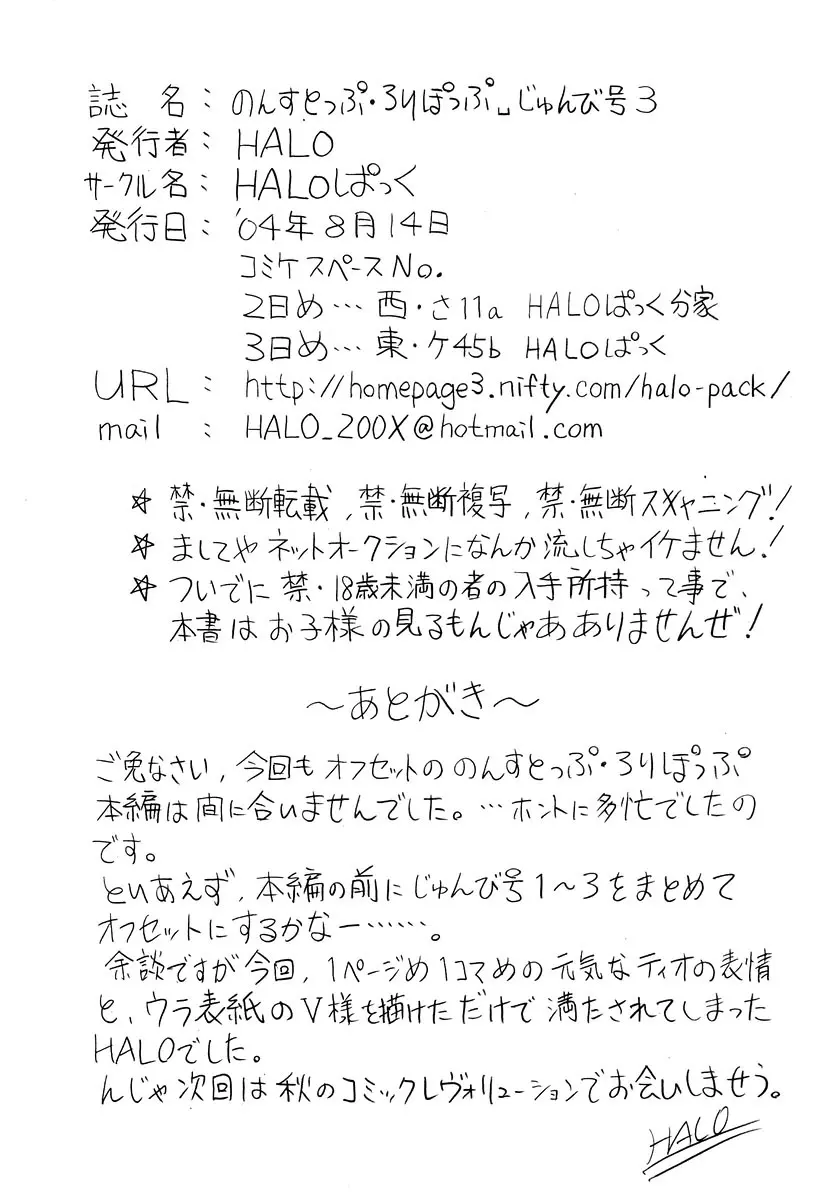 誌 名： のんすとっぷ・ろりぽっぷ␣じゅんび号3
発行者： HALO
サークル名： HALOぱっく
発行日： '04年8月14日
コミケスペースNo.
2日め… 西・さ11a HALOぱっく分家
3日め… 東・ケ45b HALOぱっく
URL： http://homepage3.nifty.com/halo-pack/
mail ： HALO_200X@hotmail.com
☆ 禁・無断転載, 禁・無断複写, 禁・無断スキャニング!
☆ ましてやネットオークションになんか流しちゃイケません!
☆ ついでに禁・18歳未満の者の入手所持って事で、
本書はお子様の見るもんじゃあありませんぜ!
～あとがき～
ご免なさい, 今回もオフセットののんすとっぷ・ろりぽっぷ
本編は間に合いませんでした。…ホントに多忙でしたの
です。
とりあえず, 本編の前にじゅんび号1～3をまとめて
オフセットにするかなー……。
余談ですが今回, 1ページめ1コマめの元気なティオの表情
と, ウラ表紙のV様を描けただけで満たされてしまった
HALOでした。
んじゃ次回は秋のコミックレヴォリューションでお会いしませう。
HALO